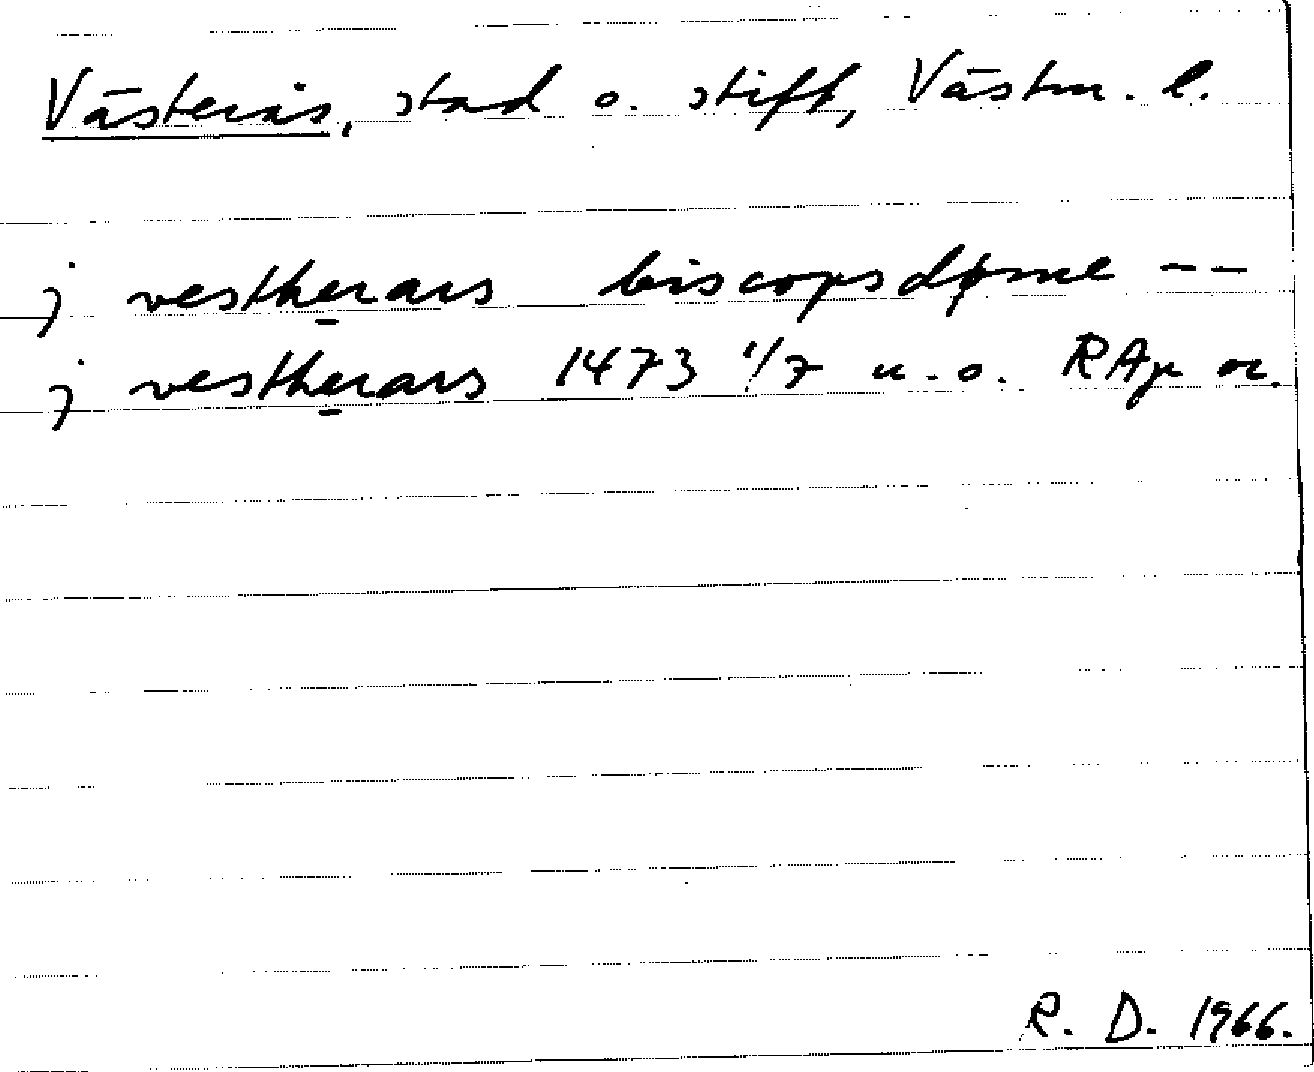 Västerås, stad o. stift, Västm. l.
j vestherars biscopsdøme --
j vestherars 1473 1/7 u.o. RAp or.
R. D. 1966.